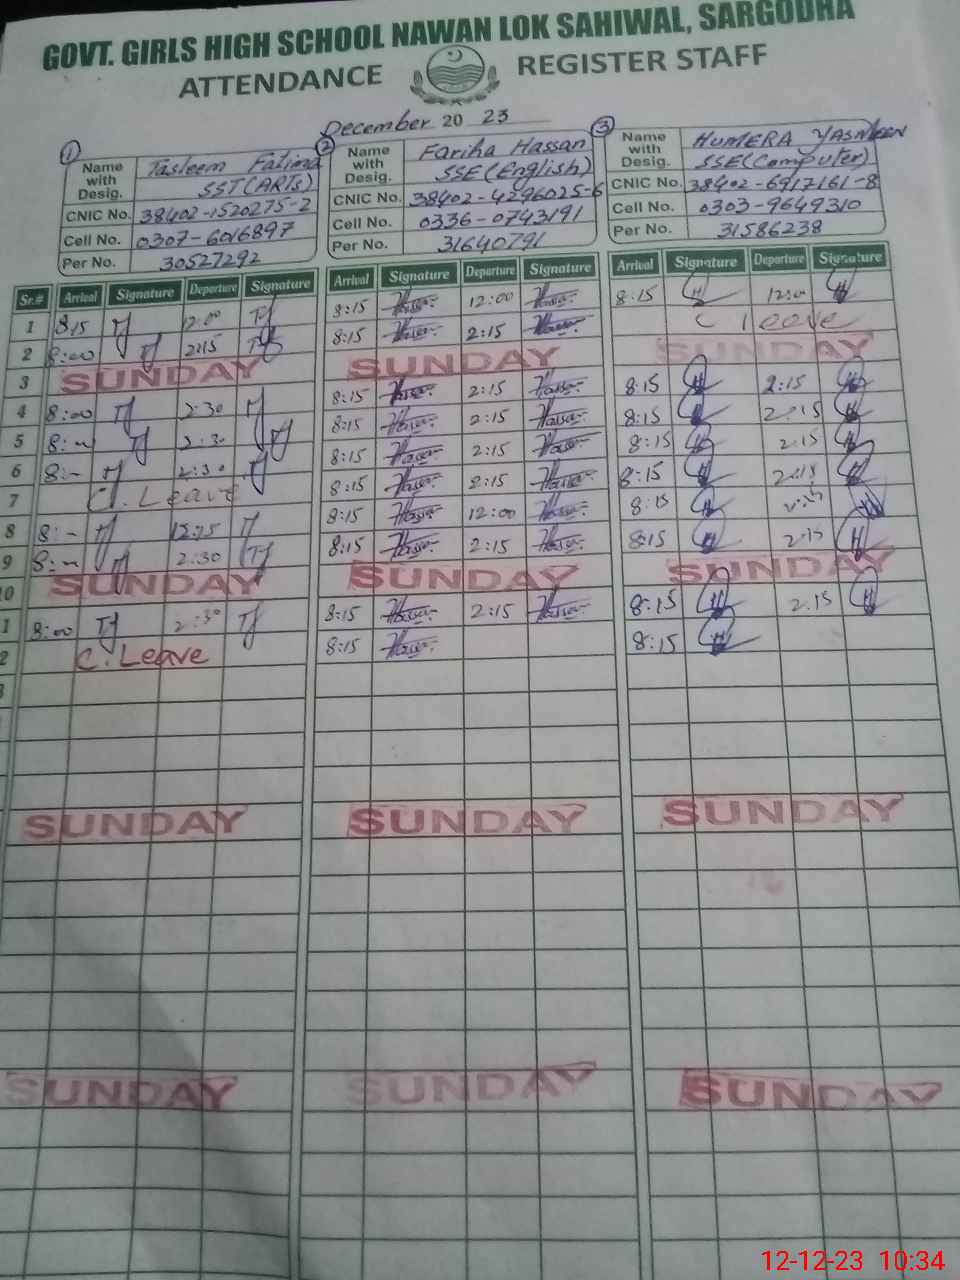 GOVT. GIRLS HIGH SCHOOL NAWAN LOK SAHIWAL, SARGODHA
ATTENDANCE REGISTER STAFF
December 20 23
1 Name with Desig. Tasleem Fatima SST(ARTs)
CNIC No. 38402-1520275-2
Cell No. 0307-6016897
Per No. 30527292
2 Name with Desig. Fariha Hassan SSE(English)
CNIC No. 38402-4296025-6
Cell No. 0336-0743191
Per No. 31640791
3 Name with Desig. HUMERA YASMEEN SSE(Computer)
CNIC No. 38402-6917161-8
Cell No. 0303-9649310
Per No. 31586238
Sr.# Arrival Signature Departure Signature Arrival Signature Departure Signature Arrival Signature Departure Signature
1 8:15 12:00 8:15 Hassan 12:00 Hassan 8:15 12:00
2 8:00 2:15 8:15 Hassan 2:15 Hassan C Leave
3 SUNDAY SUNDAY SUNDAY
4 8:00 2:30 8:15 Hassan 2:15 Hassan 8:15 2:15
5 8:15 Hassan 2:15 Hassan 8:15 2:15
6 2:30 8:15 Hassan 2:15 Hassan 8:15 2:15
7 C. Leave 8:15 Hassan 2:15 Hassan 8:15 2:15
8 8:15 Hassan 12:00 Hassan 8:15
9 2:30 8:15 Hassan 2:15 Hassan 8:15 2:15
0 SUNDAY SUNDAY SUNDAY
1 8:00 2:30 8:15 Hassan 2:15 Hassan 8:15 2:15
2 C. Leave 8:15 Hassan 8:15
3
SUNDAY SUNDAY SUNDAY
SUNDAY SUNDAY SUNDAY
12-12-23 10:34